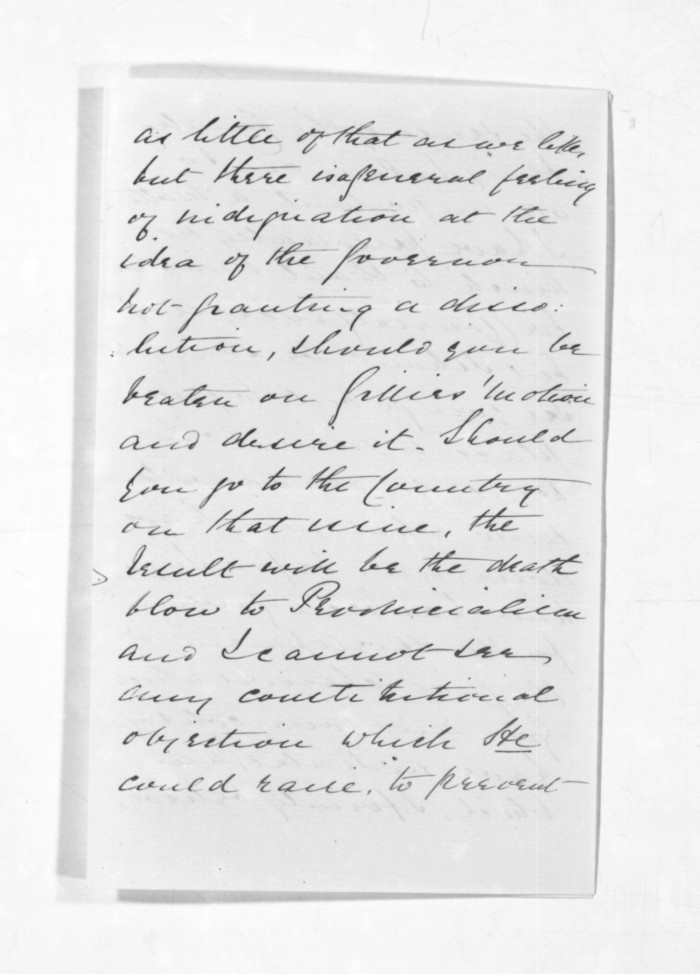 as little of that as we like,
but there is a general feeling
of indignation at the
idea of the Governor
not granting a disso:
:lution, should you be
beaten on Gillies' motion
and desire it. Should
you go to the Country
on that issue, the
result will be the death
blow to Provincialism
and I cannot see
any constitutional
objection which He
could raise, to prevent